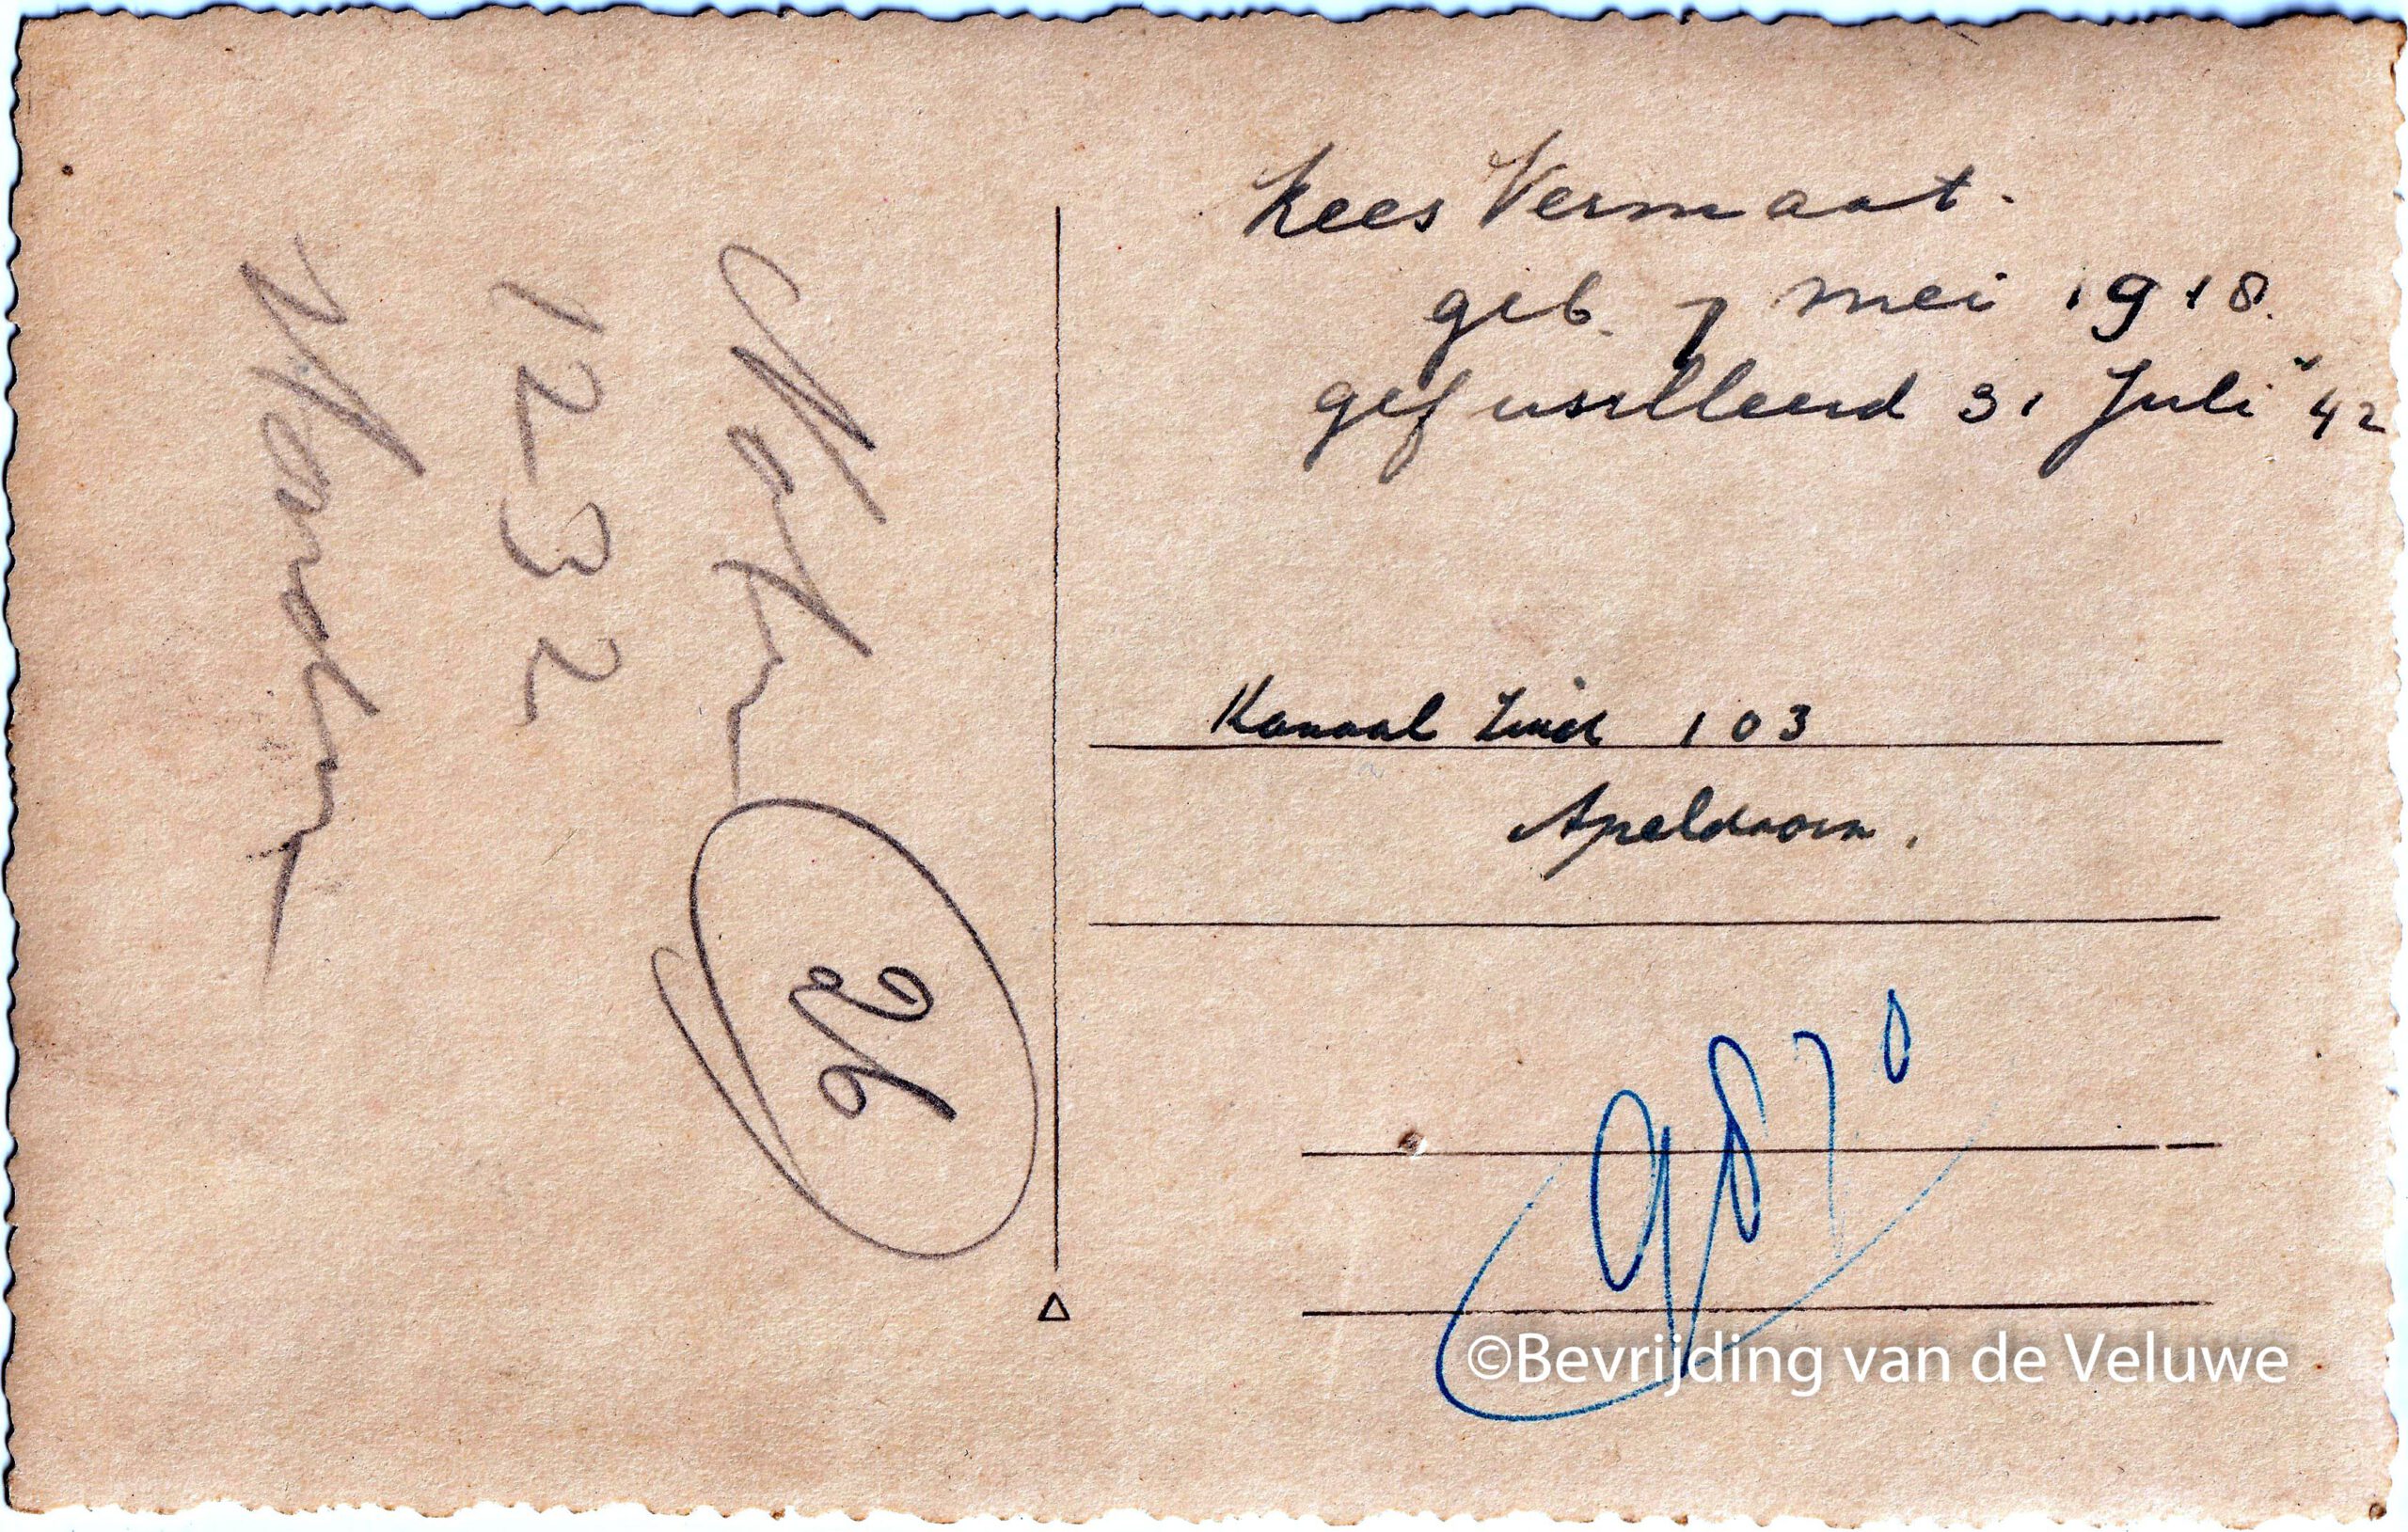 Kees Vermaat.
geb. 7 mei 1918.
gefusilleerd 31 Juli '42
Kanaal Zuid 103
Apeldoorn.
1232
26
9870
©Bevrijding van de Veluwe